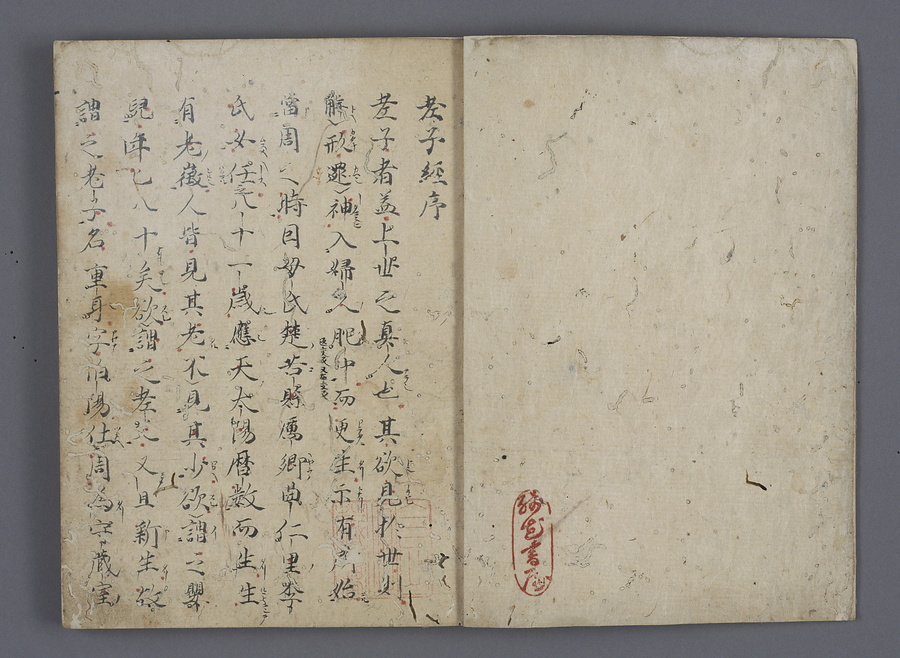 老子經序
老子者蓋上世之真人也其欲見於世則
解形還神入婦人胞中而更生示有始
當周之時因母氏楚苦縣厲鄉曲仁里李
氏女任八十一歲應天太陽曆數而生生
有老徵人皆見其老不見其少欲謂之嬰
兒年已八十矣欲謂之老又且新生故
謂之老子名重耳字伯陽仕周為守藏室